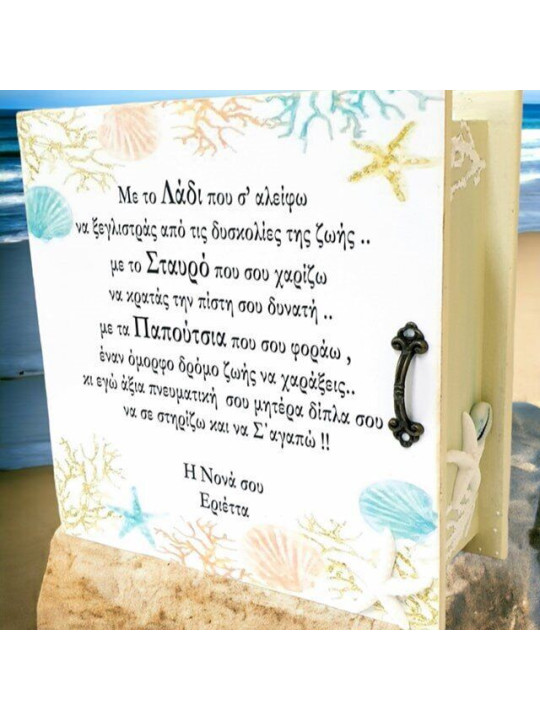 Με το Λάδι που σ' αλείφω
να ξεγλιστράς από τις δυσκολίες της ζωής ..
με το Σταυρό που σου χαρίζω
να κρατάς την πίστη σου δυνατή ..
με τα Παπούτσια που σου φοράω ,
έναν όμορφο δρόμο ζωής να χαράξεις..
κι εγώ άξια πνευματική σου μητέρα δίπλα σου
να σε στηρίζω και να Σ'αγαπώ !!
Η Νονά σου
Εριέττα